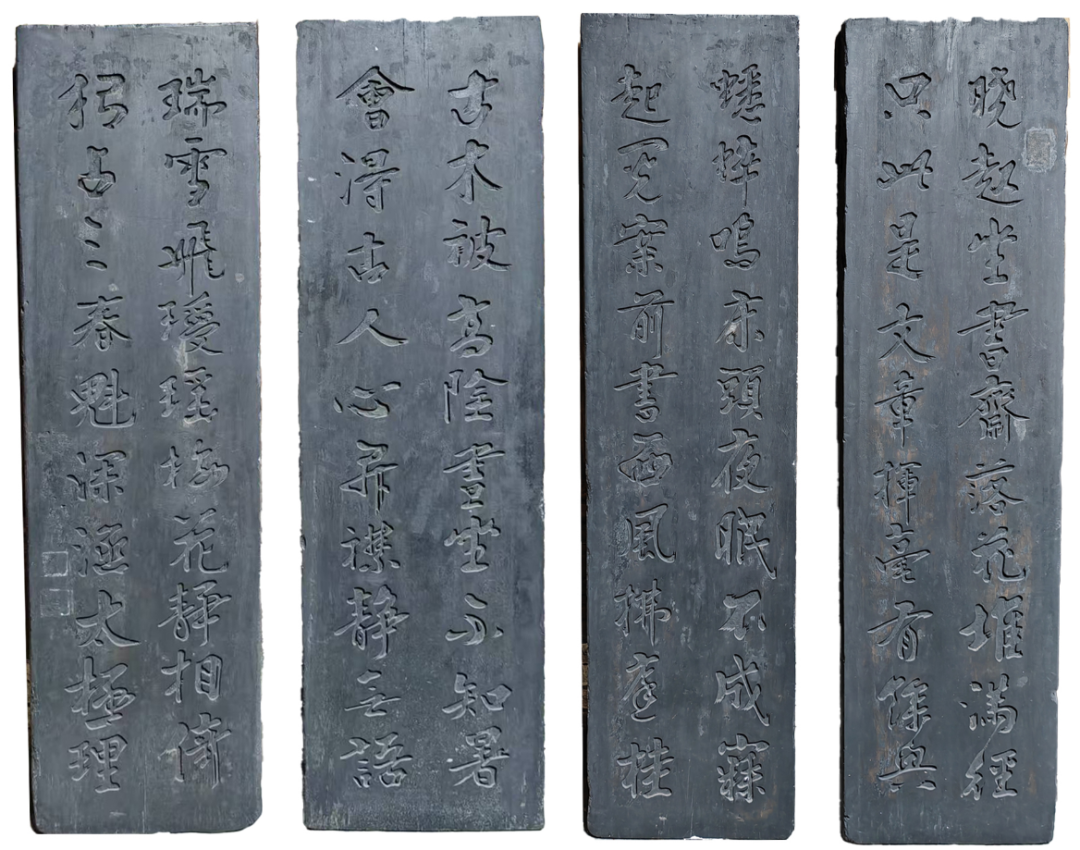 曉起坐書齋落花堆滿徑
只此是文章揮毫有餘興
蟋蟀鳴床頭夜眠不成寐
起閱案前書西風拂庭桂
古木被高陰晝坐不知暑
會得古人心開襟靜无語
瑞雪飛瓊瑤梅花靜相倚
獨占三春魁深涵太極理